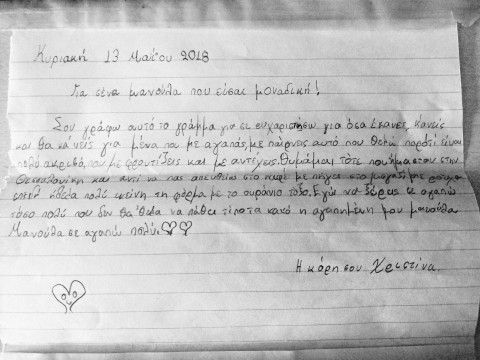 Κυριακή 13 Μαΐου 2018
Για σένα μανούλα που είσαι μοναδική!
Σου γράφω αυτό το γράμμα για σε ευχαριστήσω για όσα έκανες, κανείς
και θα κάνεις για μένα που με αγαπάς, με παίρνεις αυτό που θέλω παρότι είναι
πολύ ακριβό, που με φροντίζεις και με αντέχεις. Θυμάμαι τότε που ήμασταν στην
Θεσσαλονίκη και αντί να πας απευθείας στο καφέ με πήγες στο μαγαζί
επειδή ήθελα πολύ εκείνη τη φόρμα με το ουράνιο τόξο. Εγώ να ξέρεις σε αγαπώ
τόσο πολύ που δεν θα ήθελα να πάθει τίποτα κακό η αγαπημένη μου μανούλα
Μανούλα σε αγαπώ πολύ.♡♡
Η κόρη σου Χριστίνα.